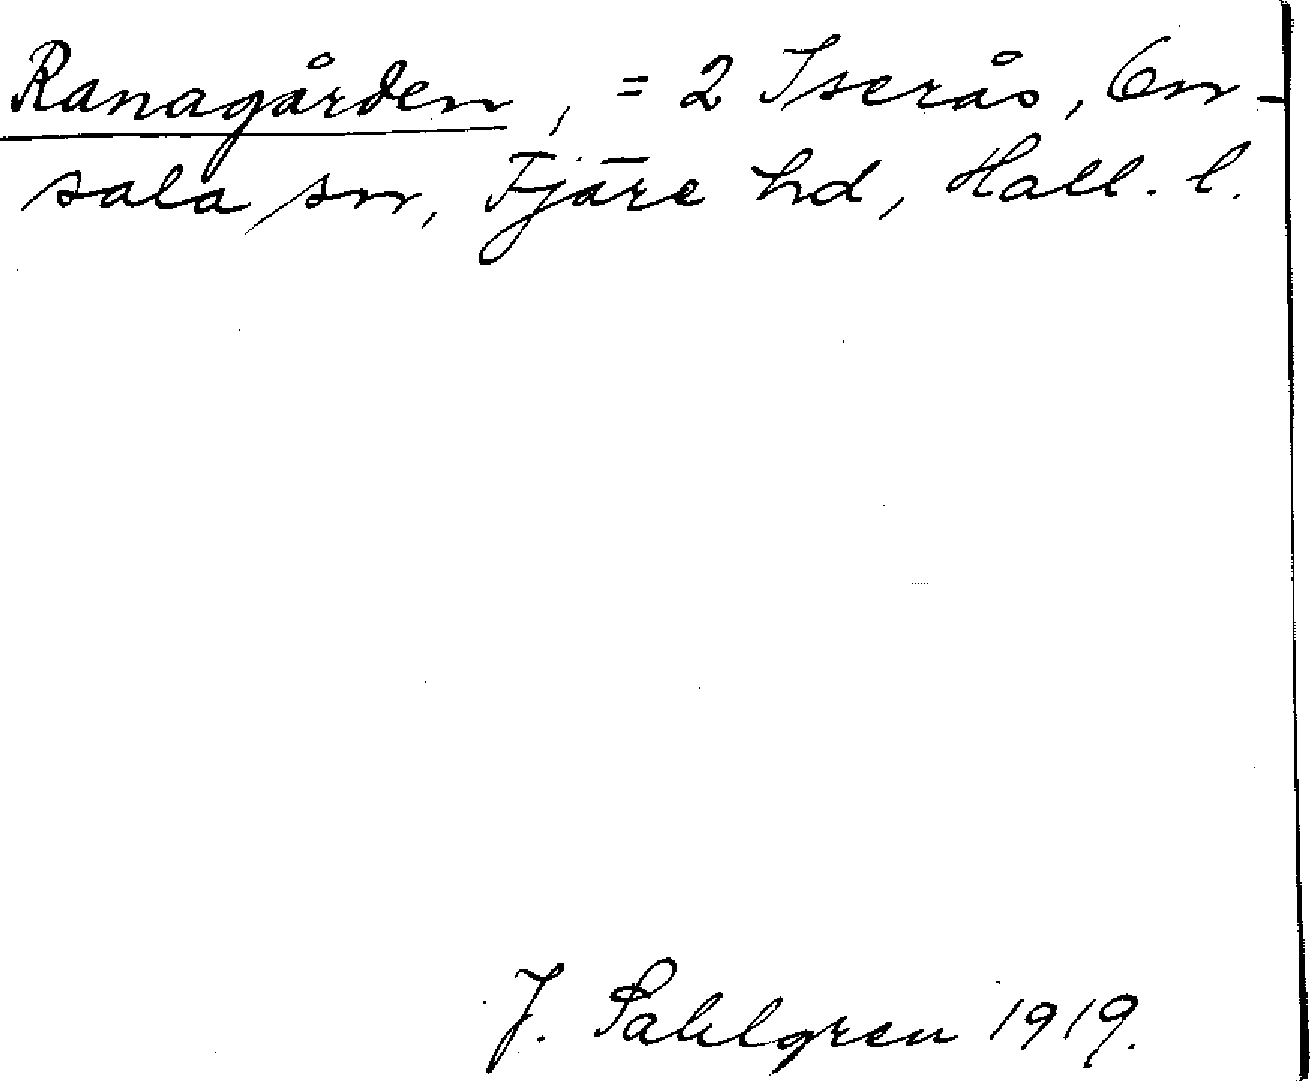 Ranagården, = 2 Iserås, On-
sala sn, Fjäre hd, Hall. l.
J. Sahlgren 1919.